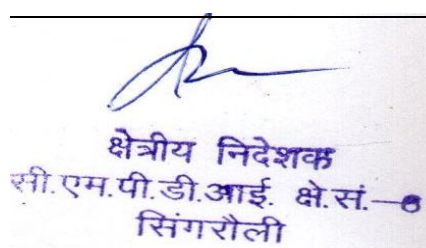 क्षेत्रीय निदेशक
सी.एम.पी.डी.आई. क्षे.सं.-६
सिंगरौली